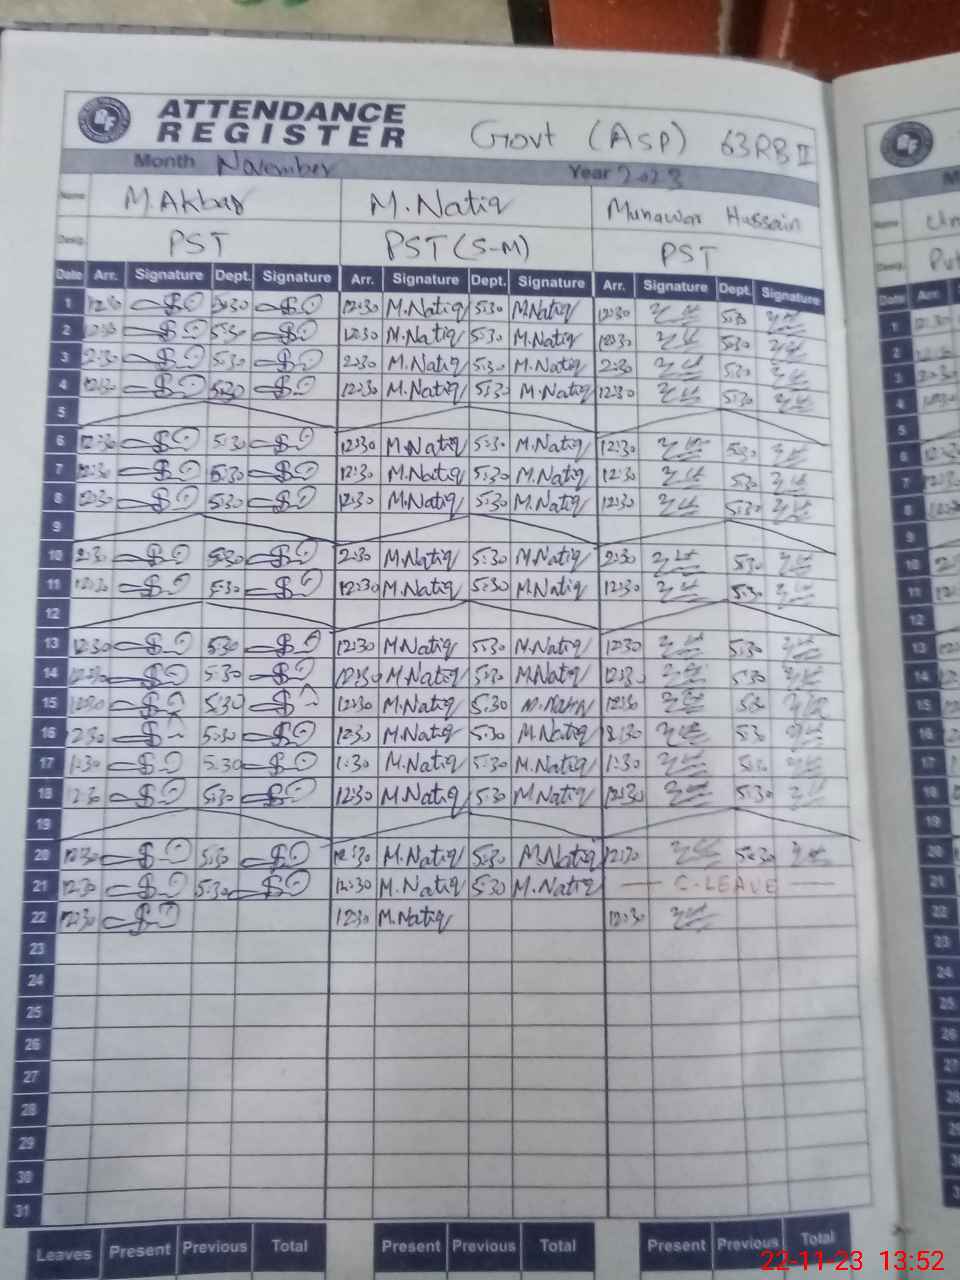 ATTENDANCE
REGISTER
Govt (ASP) 63RB II
Month November Year 2023
Name M.Akbar M.Natiq Munawar Hussain
Desig. PST PST (S-M) PST
Date Arr. Signature Dept. Signature Arr. Signature Dept. Signature Arr. Signature Dept. Signature Date Arr.
1 12:30 5:30 12:30 M.Natiq 5:30 M.Natiq 12:30 5:30 1
2 12:30 5:30 12:30 M.Natiq 5:30 M.Natiq 12:30 5:30 2
3 2:30 5:30 2:30 M.Natiq 5:30 M.Natiq 2:30 5:30 3
4 12:30 5:30 12:30 M.Natiq 5:30 M.Natiq 12:30 5:30 4
5 5
6 12:30 5:30 12:30 M.Natiq 5:30 M.Natiq 12:30 5:30 6
7 12:30 5:30 12:30 M.Natiq 5:30 M.Natiq 12:30 5:30 7
8 12:30 5:30 12:30 M.Natiq 5:30 M.Natiq 12:30 5:30 8
9 9
10 2:30 5:30 2:30 M.Natiq 5:30 M.Natiq 2:30 5:30 10
11 12:30 5:30 12:30 M.Natiq 5:30 M.Natiq 12:30 5:30 11
12 12
13 12:30 5:30 12:30 M.Natiq 5:30 M.Natiq 12:30 5:30 13
14 12:30 5:30 12:30 M.Natiq 5:30 M.Natiq 12:30 5:30 14
15 12:30 5:30 12:30 M.Natiq 5:30 M.Natiq 12:30 5:30 15
16 12:30 5:30 12:30 M.Natiq 5:30 M.Natiq 5:30 16
17 1:30 5:30 1:30 M.Natiq 5:30 M.Natiq 1:30 5:30 17
18 12:30 5:30 12:30 M.Natiq 5:30 M.Natiq 12:30 5:30 18
19 19
20 12:30 5:30 12:30 M.Natiq 5:30 M.Natiq 12:30 5:30 20
21 12:30 5:30 12:30 M.Natiq 5:30 M.Natiq C.LEAVE 21
22 12:30 12:30 M.Natiq 12:30 22
23 23
24 24
25 25
26 26
27 27
28 28
29
30
31
Leaves Present Previous Total Present Previous Total Present Previous Total
22-11-23 13:52